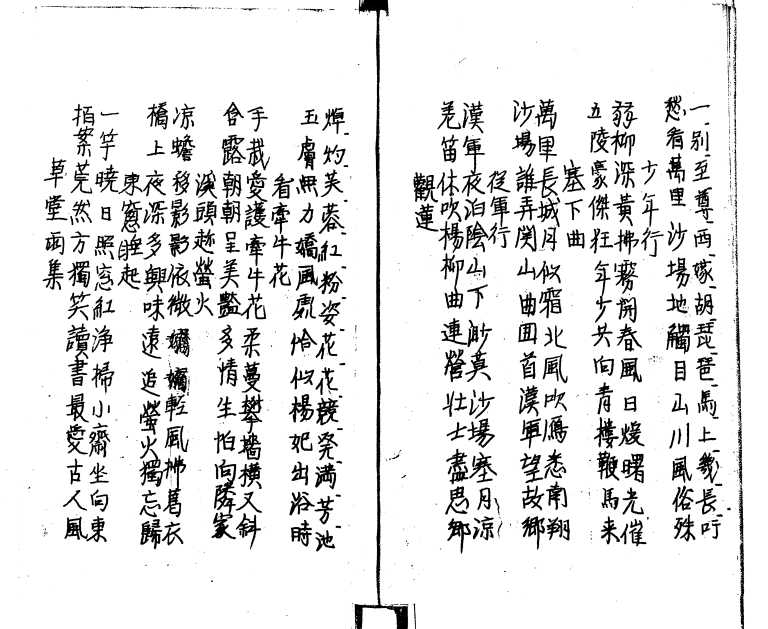 一別至尊西嫁胡琵琶馬上幾長吁
愁看萬里沙場地觸目山川風俗殊
少年行
弱柳深黃拂霧開春風日煖曙光催
五陵豪傑狂年少共向青樓鞭馬来
塞下曲
萬里長城月似霜北風吹鴈悉南翔
沙場誰弄関山曲囬首漢軍望故鄉
從軍行
漢軍夜泊陰山下渺莫沙場塞月凉
羌笛休吹楊柳曲連營壮士盡思鄉
觀蓮
焯灼芙蓉紅粉姿花花競発満芳池
玉膚無力嬌風処恰似楊妃出浴時
看牽牛花
手栽愛護牽牛花柔蔓攀墻横又斜
含露朝朝呈美豔多情生怕向隣家
溪頭趁螢火
凉蟾移影影液微嫋嫋輕風拂葛衣
橋上夜深多興味遠追螢火獨忘歸
東窓睡起
一竿曉日照窓紅浄掃小齋坐向東
拍案莞然方獨笑讀書最愛古人風
草堂雨集